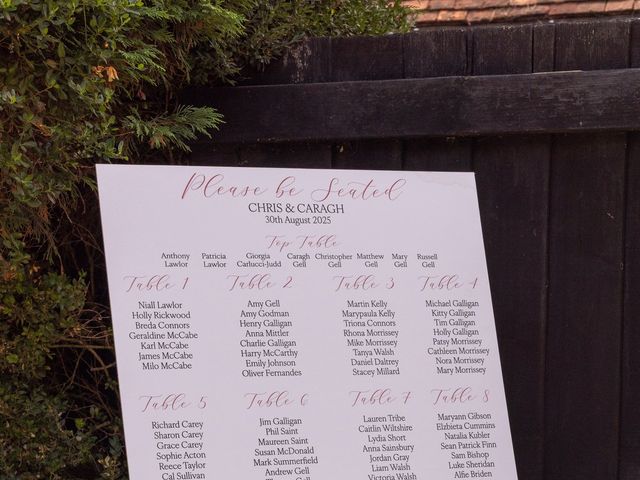 Please be Seated
CHRIS & CARAGH
30th August 2025
Top Table
Anthony Lawlor
Patricia Lawlor
Giorgia Carlucci-Judd
Caragh Gell
Christopher Gell
Matthew Gell
Mary Gell
Russell Gell
Table 1
Niall Lawlor
Holly Rickwood
Breda Connors
Geraldine McCabe
Karl McCabe
James McCabe
Milo McCabe
Table 2
Amy Gell
Amy Godman
Henry Galligan
Anna Mittler
Charlie Galligan
Harry McCarthy
Emily Johnson
Oliver Fernandes
Table 3
Martin Kelly
Marypaula Kelly
Triona Connors
Rhona Morrissey
Mike Morrissey
Tanya Walsh
Daniel Daltrey
Stacey Millard
Table 4
Michael Galligan
Kitty Galligan
Tim Galligan
Holly Galligan
Patsy Morrissey
Cathleen Morrissey
Nora Morrissey
Mary Morrissey
Table 5
Richard Carey
Sharon Carey
Grace Carey
Sophie Acton
Reece Taylor
Cal Sullivan
Table 6
Jim Galligan
Phil Saint
Maureen Saint
Susan McDonald
Mark Summerfield
Andrew Gell
Table 7
Lauren Tribe
Caitlin Wiltshire
Lydia Short
Anna Sainsbury
Jordan Gray
Liam Walsh
Victoria Walsh
Table 8
Maryann Gibson
Elzbieta Cummins
Natalia Kubler
Sean Patrick Finn
Sam Bishop
Luke Sheridan
Alfie Briden